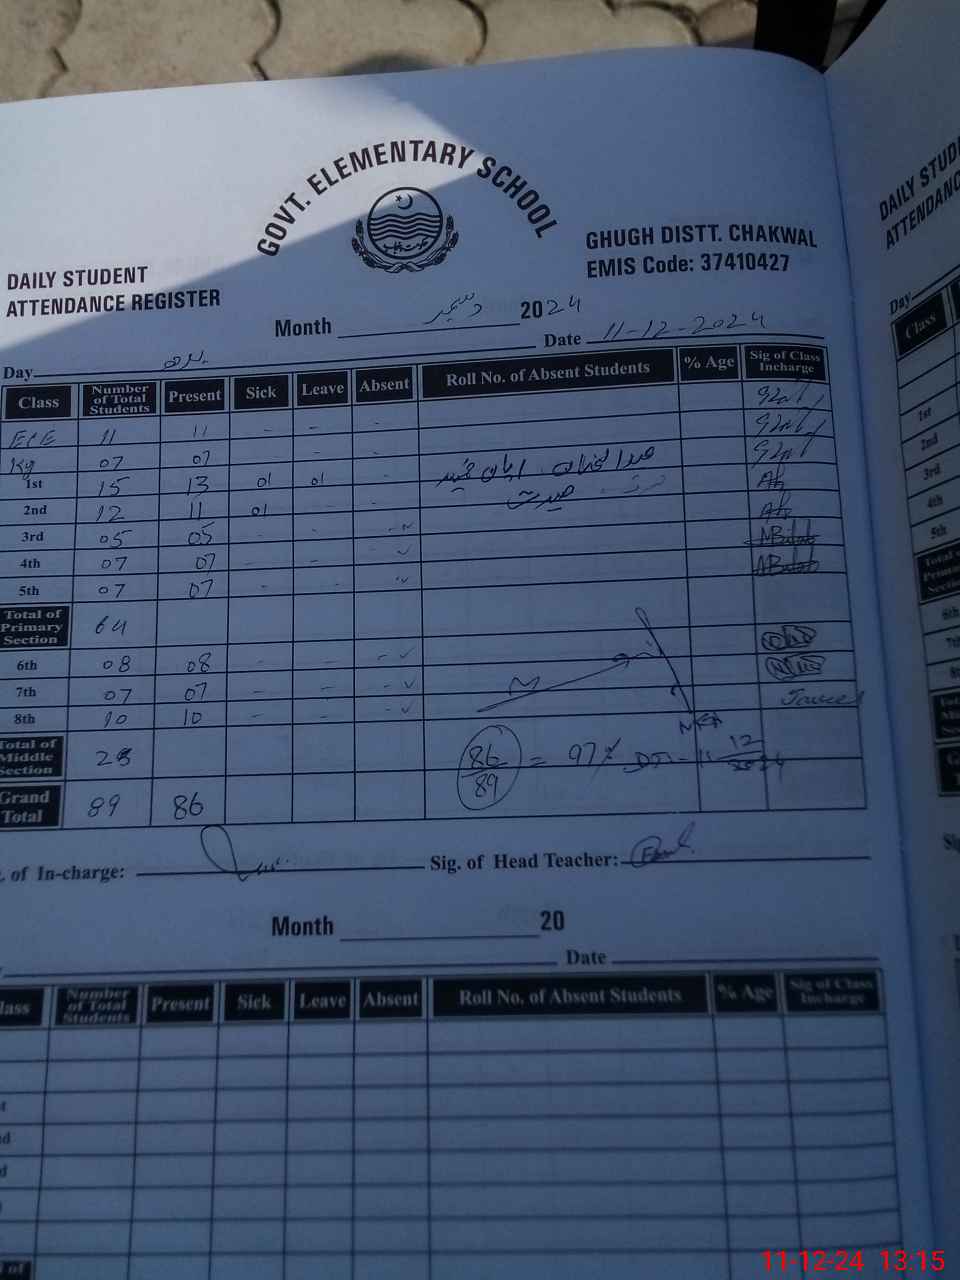 GOVT. ELEMENTARY SCHOOL
GHUGH DISTT. CHAKWAL
EMIS Code: 37410427
DAILY STUDENT
ATTENDANCE REGISTER
Month دسمبر 2024
Day بدھ Date 11-12-2024
Class Number of Total Students Present Sick Leave Absent Roll No. of Absent Students % Age Sig of Class Incharge
ECE 11 11 - - -
Kg 07 07 - - -
1st 15 13 01 01 -
2nd 12 11 01 -
3rd 05 05 - - -
4th 07 07 - -
5th 07 07 - -
Total of Primary Section 64
6th 08 08 - - -
7th 07 07 - - -
8th 10 10 - - -
Total of Middle Section 25
86/89 = 97%
Grand Total 89 86
. of In-charge: Sig. of Head Teacher:
Month 20
Date
lass Number of Total Students Present Sick Leave Absent Roll No. of Absent Students % Age Sig of Class Incharge
t
d
d
of
DAILY STUD
ATTENDANC
Day
Class
1st
2nd
3rd
4th
5th
Total
Prima
Secti
6th
11-12-24 13:15